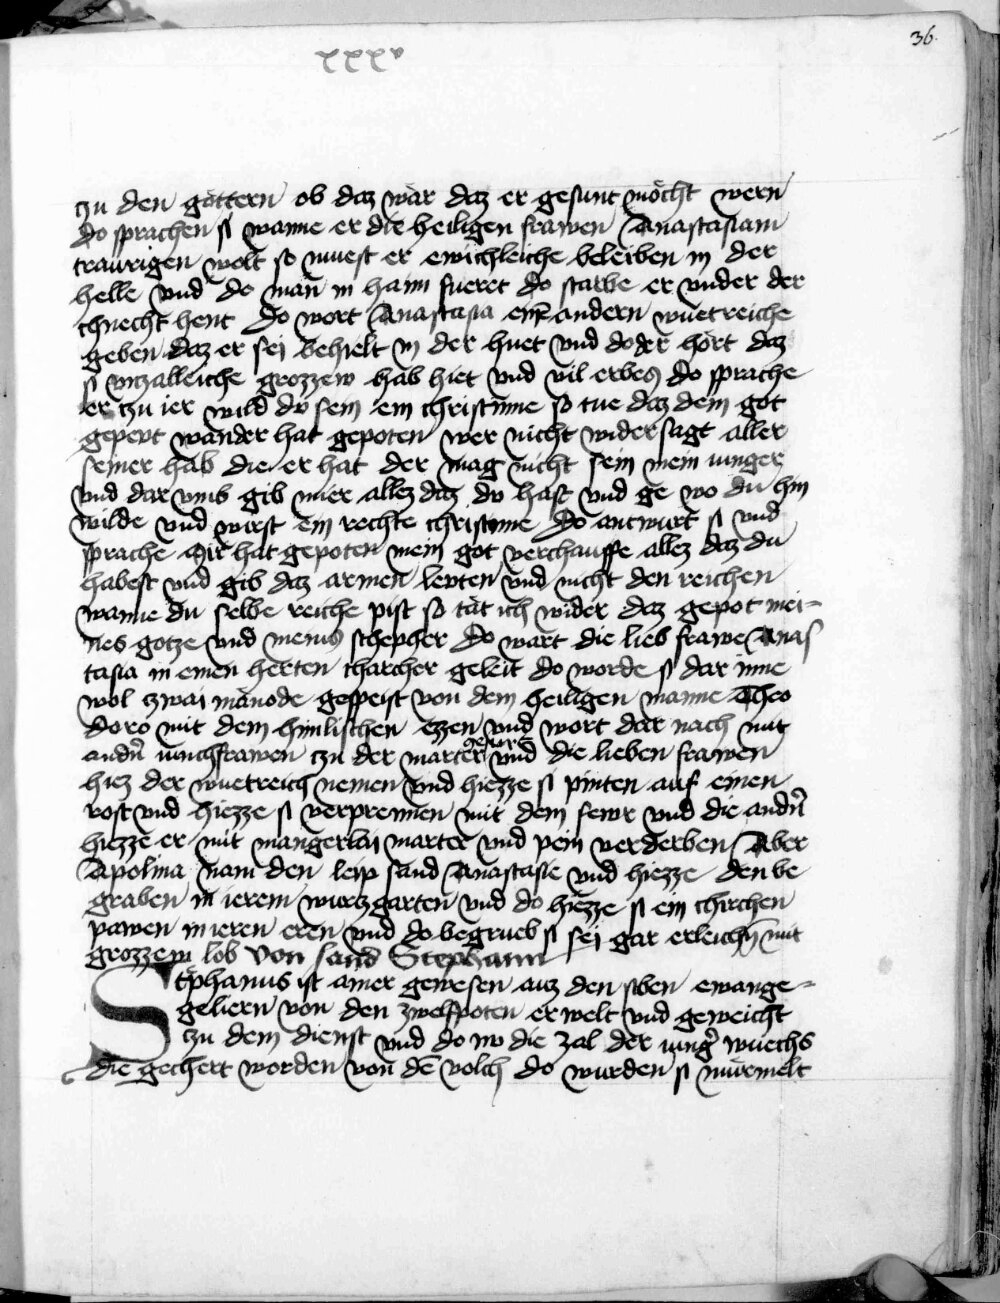 36.
xxxv
tzu den göttern ob daz wär daz er gesunt möcht wern
do sprachen si wanne er die heiligen frawen Anastasiam
traurigen wolt so muest er ewichleiche beleiben in der
helle vnd do man in haim fueret do starbe er vnder der
chnecht hent Do wort Anastasia eim andern wuetreiche
geben daz er sei behielt in der huet vnd do der hört daz
si vnzalleiche grozzew hab hiet vnd vil erbes do sprache
er tzu ier wild du sein ein christinne so tue daz dem got
gepewt wander hat gepoten wer nicht widersagt aller
seiner hab die er hat der mag nicht sein mein iunger
vnd dar vmb gib mier allez daz du hast vnd ge wo du hin
wilde vnd wirst ein rechte christinne Do antwurt si vnd
sprache Mir hat gepoten mein got verchauffe allez daz du
habest vnd gib daz armen lewten vnd nicht den reichen
wanne du selbe reiche pist so tät ich wider daz gepot mei-
nes gotze vnd meins schepher Do wart die lieb frawe Anas
tasia in einen herten charcher geleit do worde si dar inne
wol tzwai mänode gespeist von dem heiligen manne Theo
doro mit dem himlischen ezzen vnd wort dar nach mit
andern iunchfrawen tzu der marter vnd die lieben frawen
hiez der wuetreich nemen vnd hiezze si pinten auf einen
rost vnd hiezze si verprennen mit dem fewr vnd die andern
hiezze er mit mangerlay marter vnd pein verderben Aber
Apolina nam den leip sand Anastasie vnd hiezze den be
graben in ierem wurtzgarten vnd do hiezze si ein chirchen
pawen in ieren eren vnd do begrueb si sei gar erleich mit
grozzem lob Von sand Stephann
Stephanus ist ainer gewesen auz den siben ewange-
geliern von den zwelfpoten erwelt vnd geweicht
tzu dem dienst vnd do nv die zal der iunger wuechs
die gechert worden von dem volch do wurden si muermelt